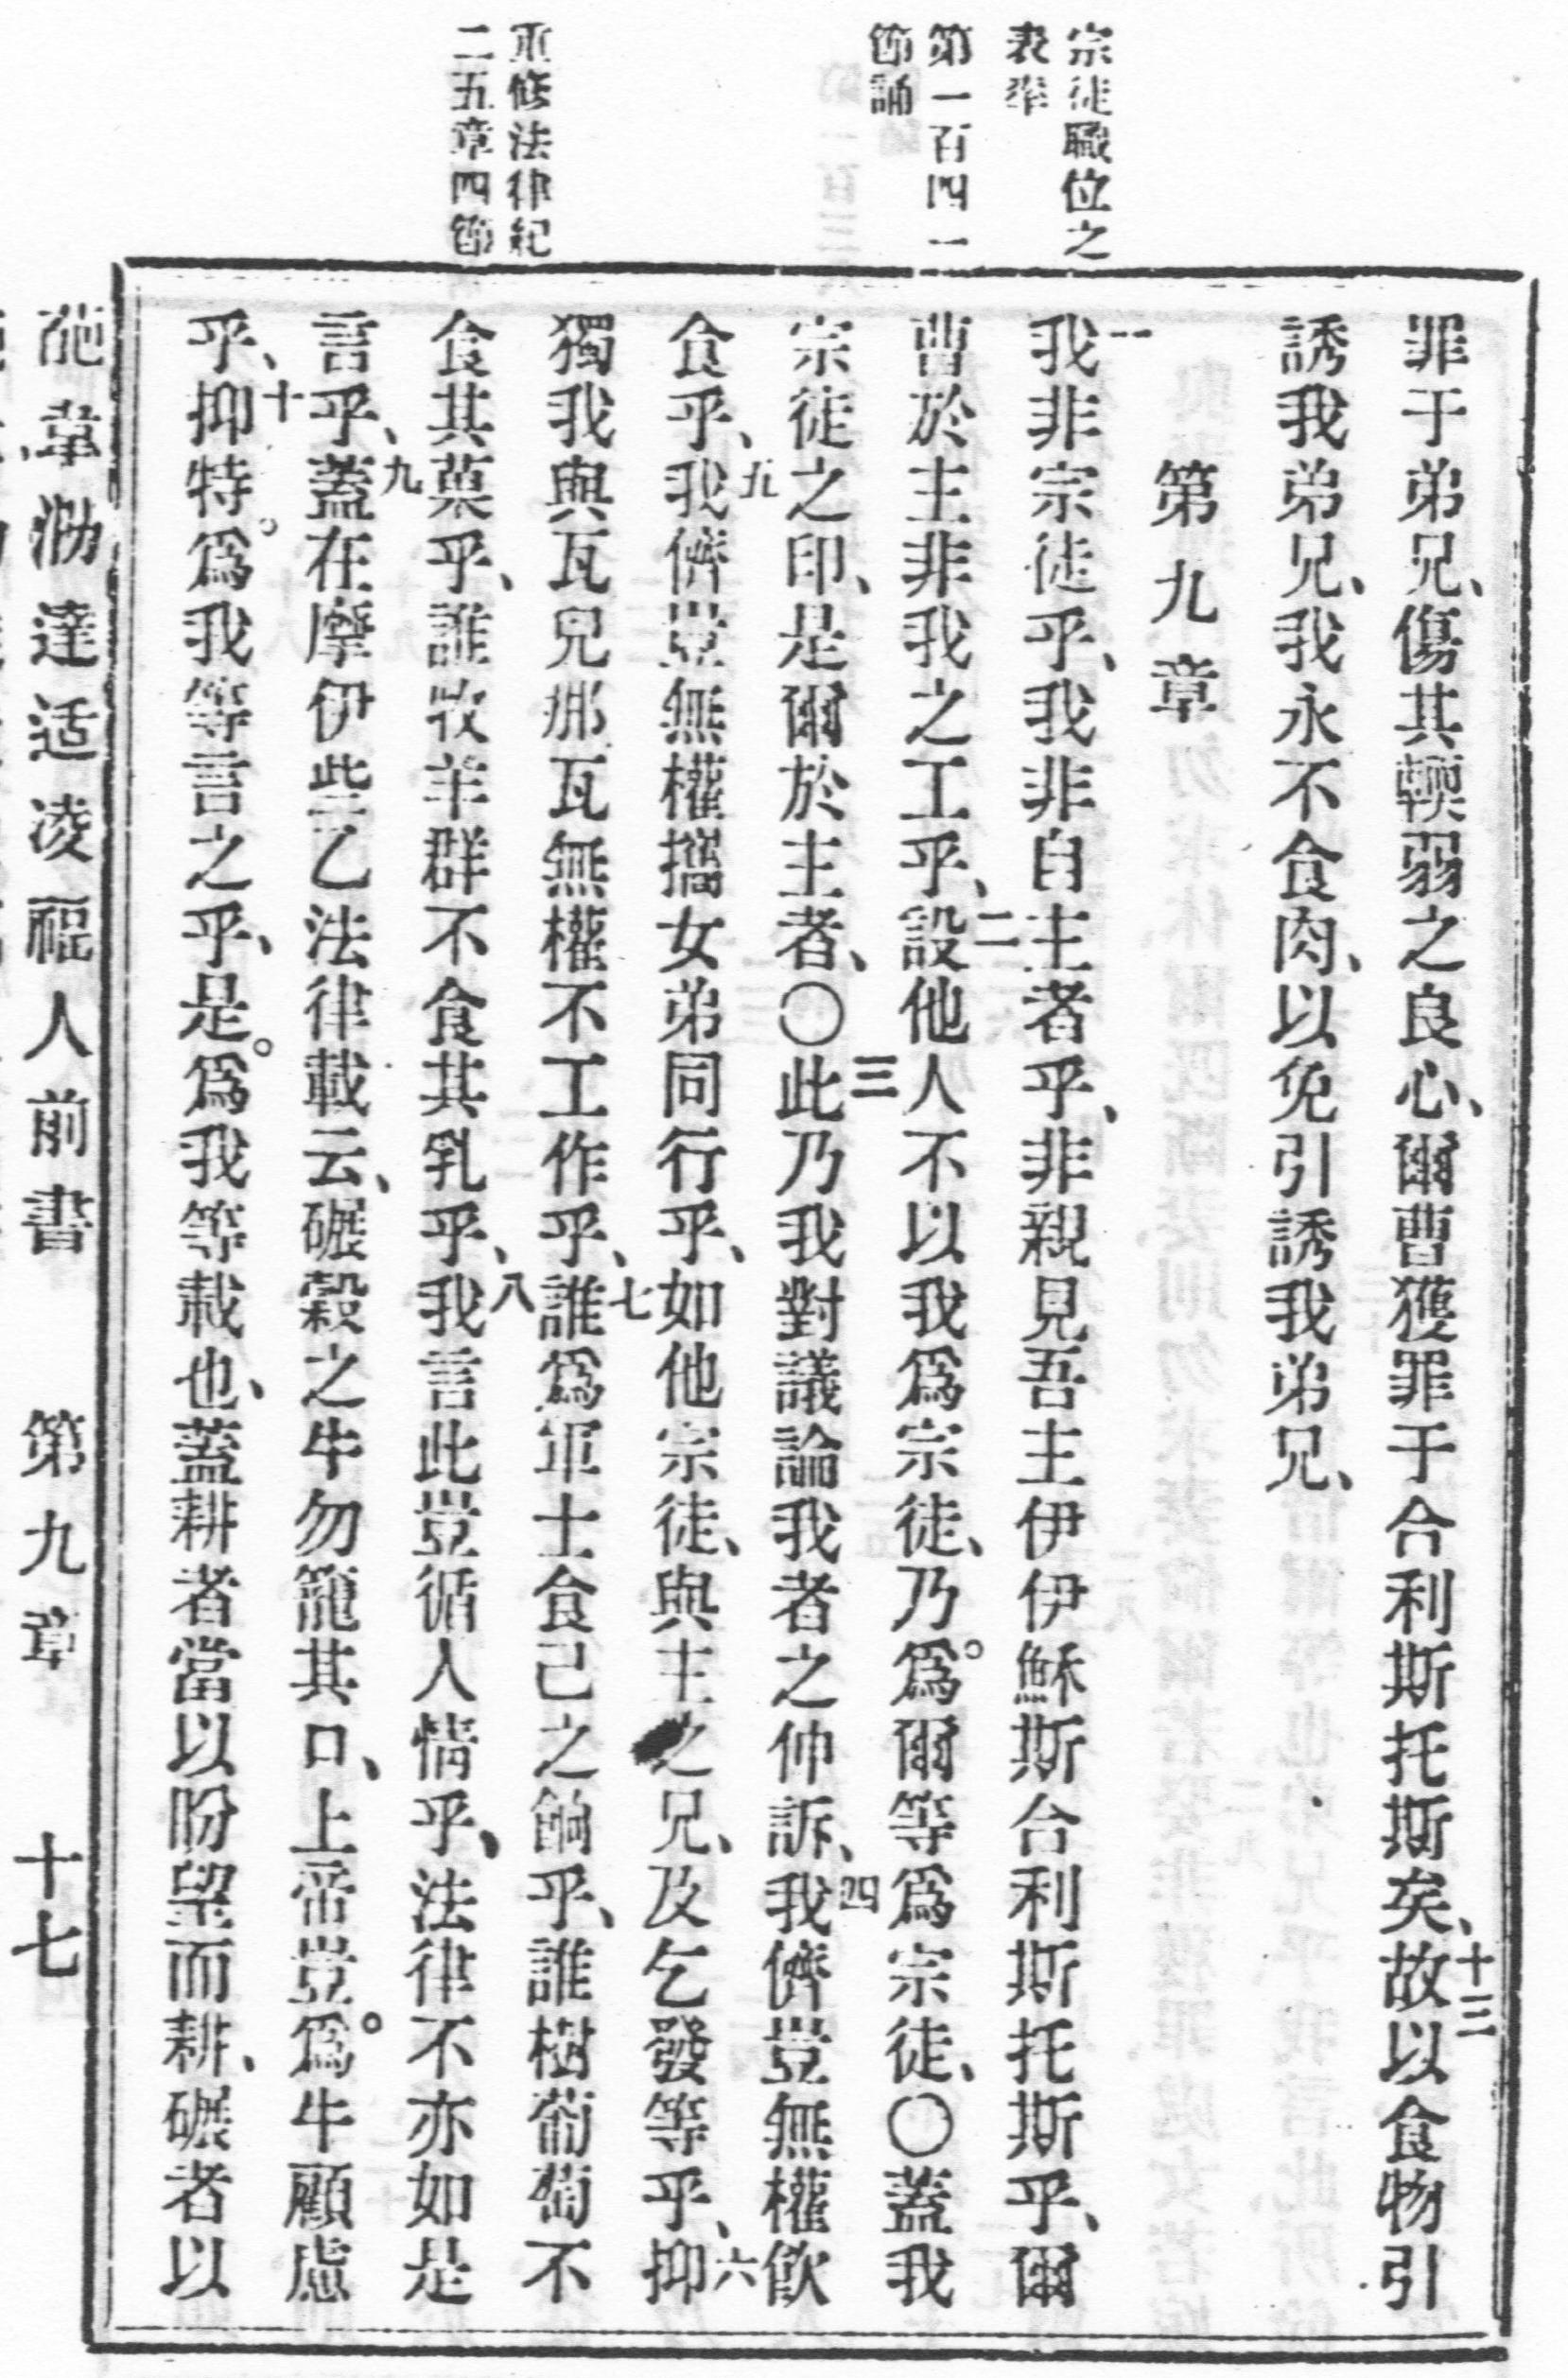 宗徒職位之
表率
第一百四一
節誦
重修法律紀
二五章四節
罪于弟兄、傷其輭弱之良心、爾曹獲罪于合利斯托斯矣、十三故以食物引
誘我弟兄、我永不食肉、以免引誘我弟兄、
第九章
一我非宗徒乎、我非自主者乎、非親見吾主伊伊穌斯合利斯托斯乎、爾
曹於主非我之工乎、二設他人不以我爲宗徒、乃爲。爾等爲宗徒、〇蓋我
宗徒之印、是爾於主者、〇三此乃我對議論我者之伸訴、四我儕豈無權飲
食乎、五我儕豈無權攜女弟同行乎、如他宗徒、與主之兄、及乞發等乎、六抑
獨我與瓦兄那瓦無權不工作乎、七誰爲軍士食己之餉乎、誰樹葡萄不
食其菓乎、誰牧羊群不食其乳乎、八我言此豈循人情乎、法律不亦如是
言乎、九蓋在摩伊些乙法律載云、碾穀之牛勿籠其口、上帝豈爲。牛顧慮
乎、十抑特爲。我等言之乎、是爲。我等載也、蓋耕者當以盼望而耕、碾者以
葩韋泐達适凌福人前書 第九章 十七